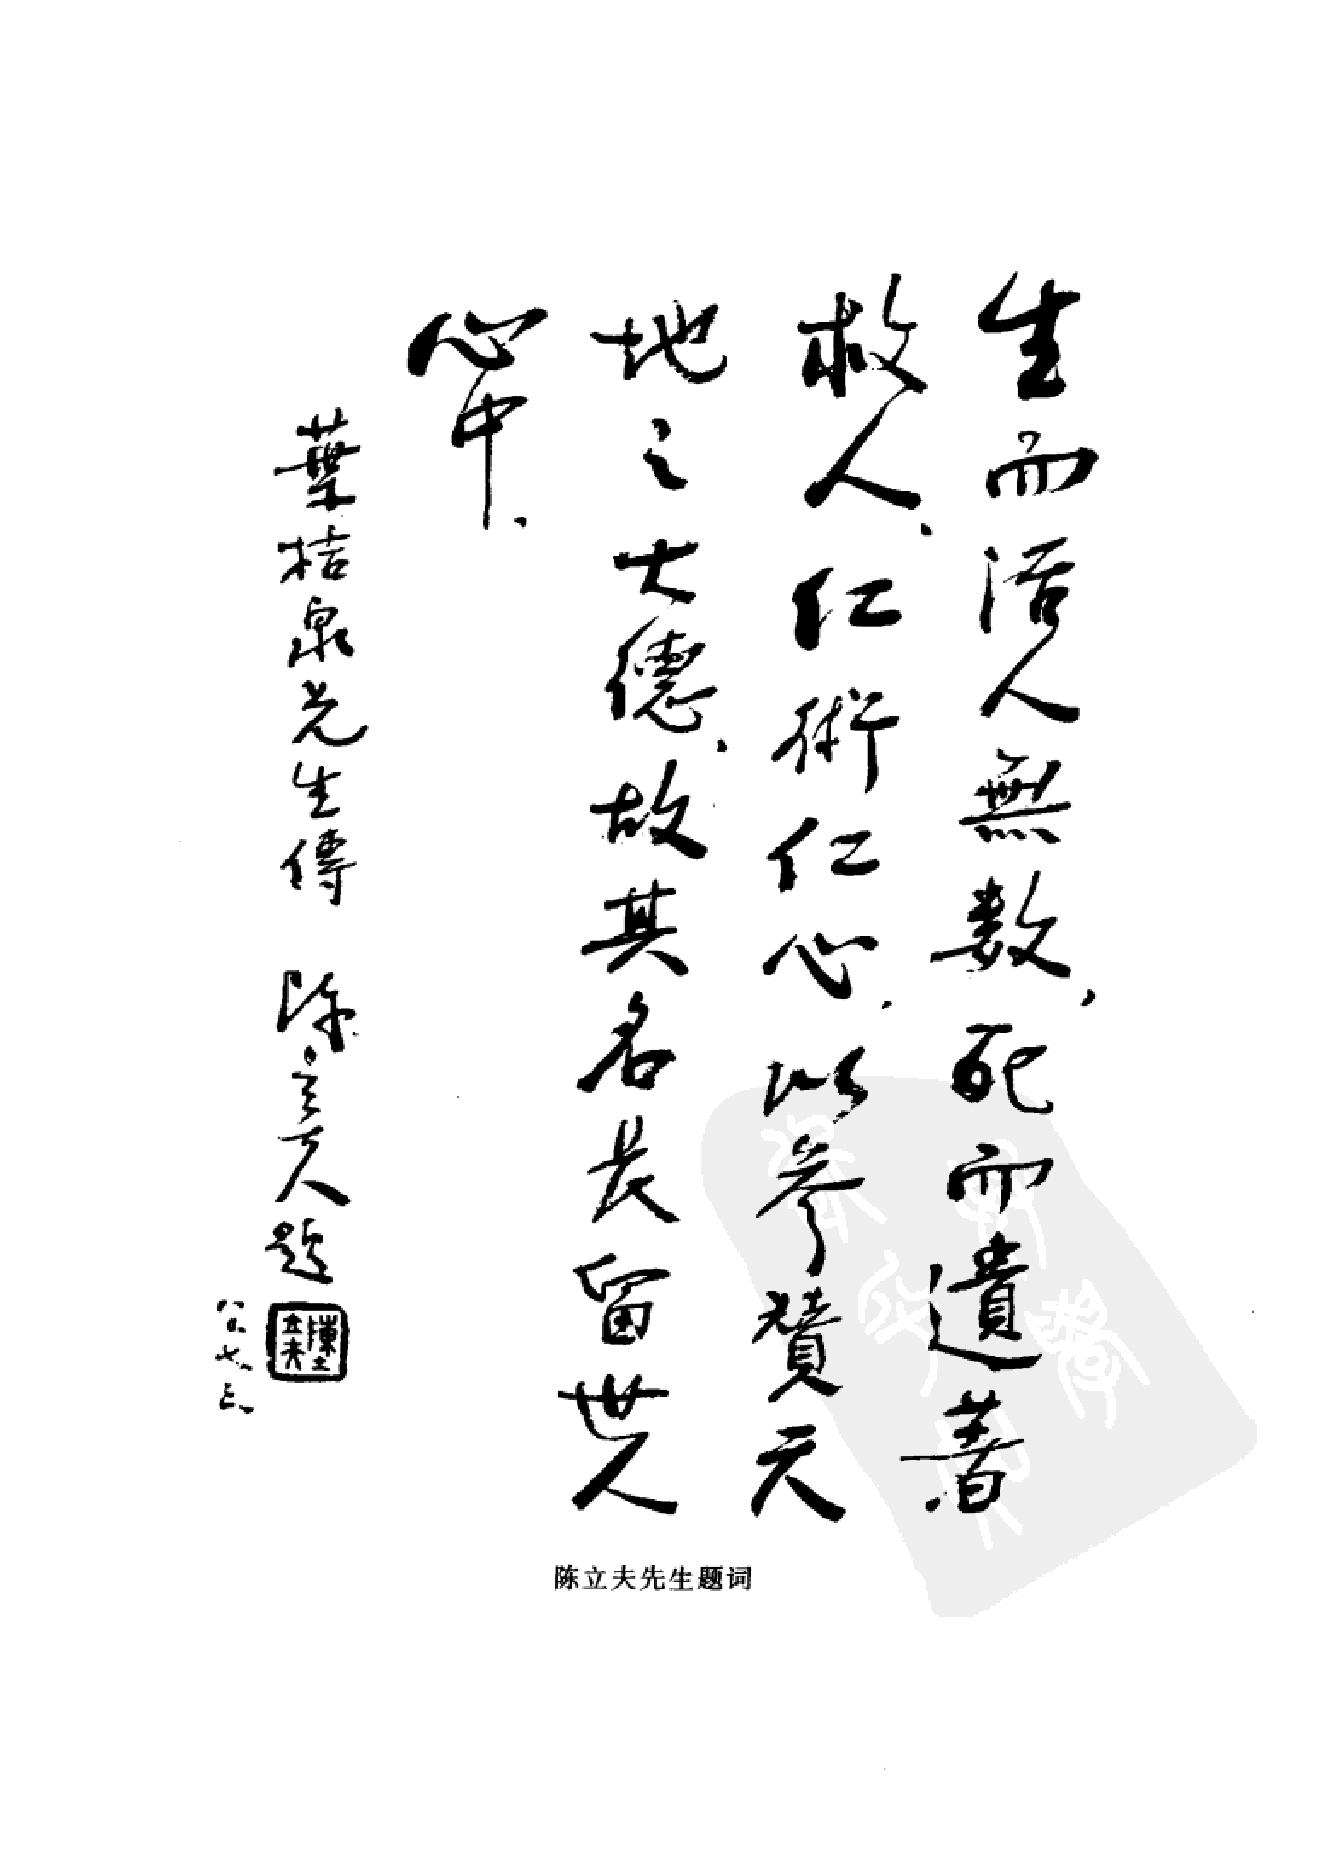 生而活人無数，死而遺著
救人、仁術仁心、以參贊天
地之大德、故其名長留世人
心中、
葉桔泉先生傳 陈立夫題
八六、七、三、
陳立夫
陈立夫先生题词